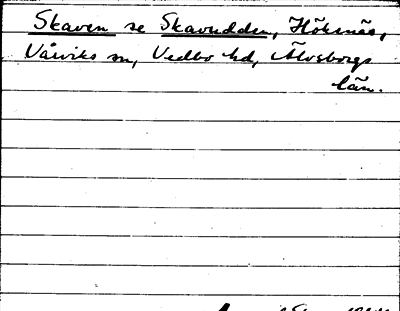 Skaven se Skavudden, Höksnäs,
Vårviks sn, Vedbo hd, Älvsborgs
län.